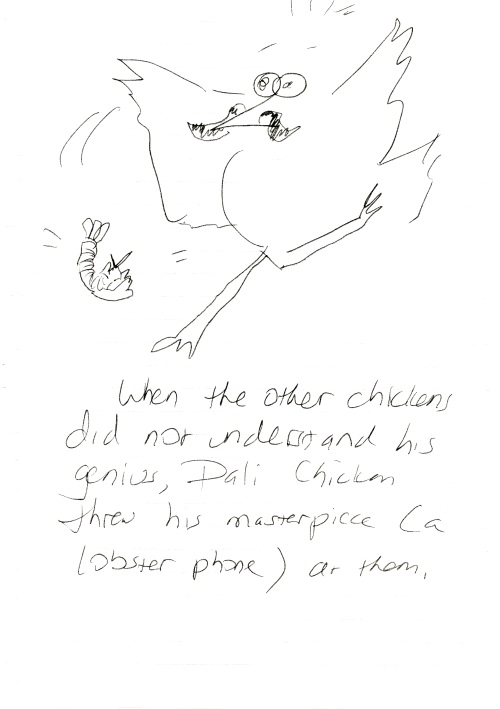 When the other chickens
did not understand his
genius, Dali Chicken
threw his masterpiece (a
lobster phone) at them.